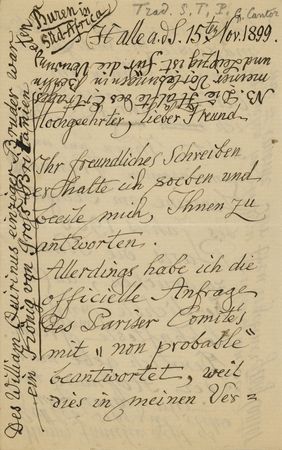 Trad. S. T. P. G. Cantor
Halle a.d.S. 15ten Nov. 1899.
Hochgeehrter, lieber Freund
Ihr freundliches Schreiben
erhalte ich soeben und
beeile mich, Ihnen zu
antworten.
Allerdings habe ich die
officielle Anfrage
des Pariser Comités
mit „non probable"
beantwortet, weil
dies in meinen Ver=
NB. Die Hälfte des Ertrages
meiner Vorlesung in Berlin
und Leipzig ist für die
Buren in
Süd-Africa
Des William Quirinus einziger Bruder war
ein König von Gross-Britannien